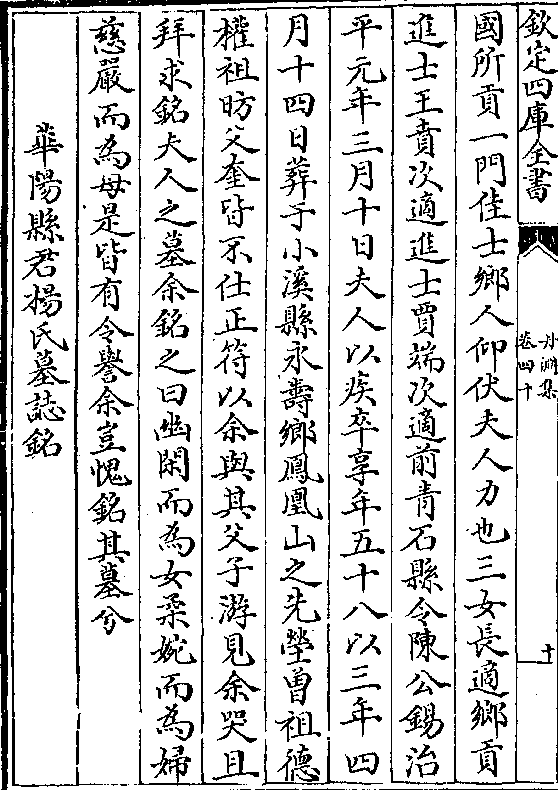 欽定四庫全書
丹淵集
卷四十
十
國所貢一門佳士鄉人仰伏夫人力也三女長適鄉貢
進士王賁次適進士賈端次適前青石縣令陳公錫治
平元年三月十日夫人以疾卒享年五十八以三年四
月十四日葬于小溪縣永壽鄉鳳凰山之先塋曽祖德
權祖昉父奎皆不仕正符以余與其父子游見余哭且
拜求銘夫人之墓余銘之曰幽閑而為女柔婉而為婦
慈嚴而為母是皆有令譽余豈愧銘其墓兮
華陽縣君楊氏墓誌銘